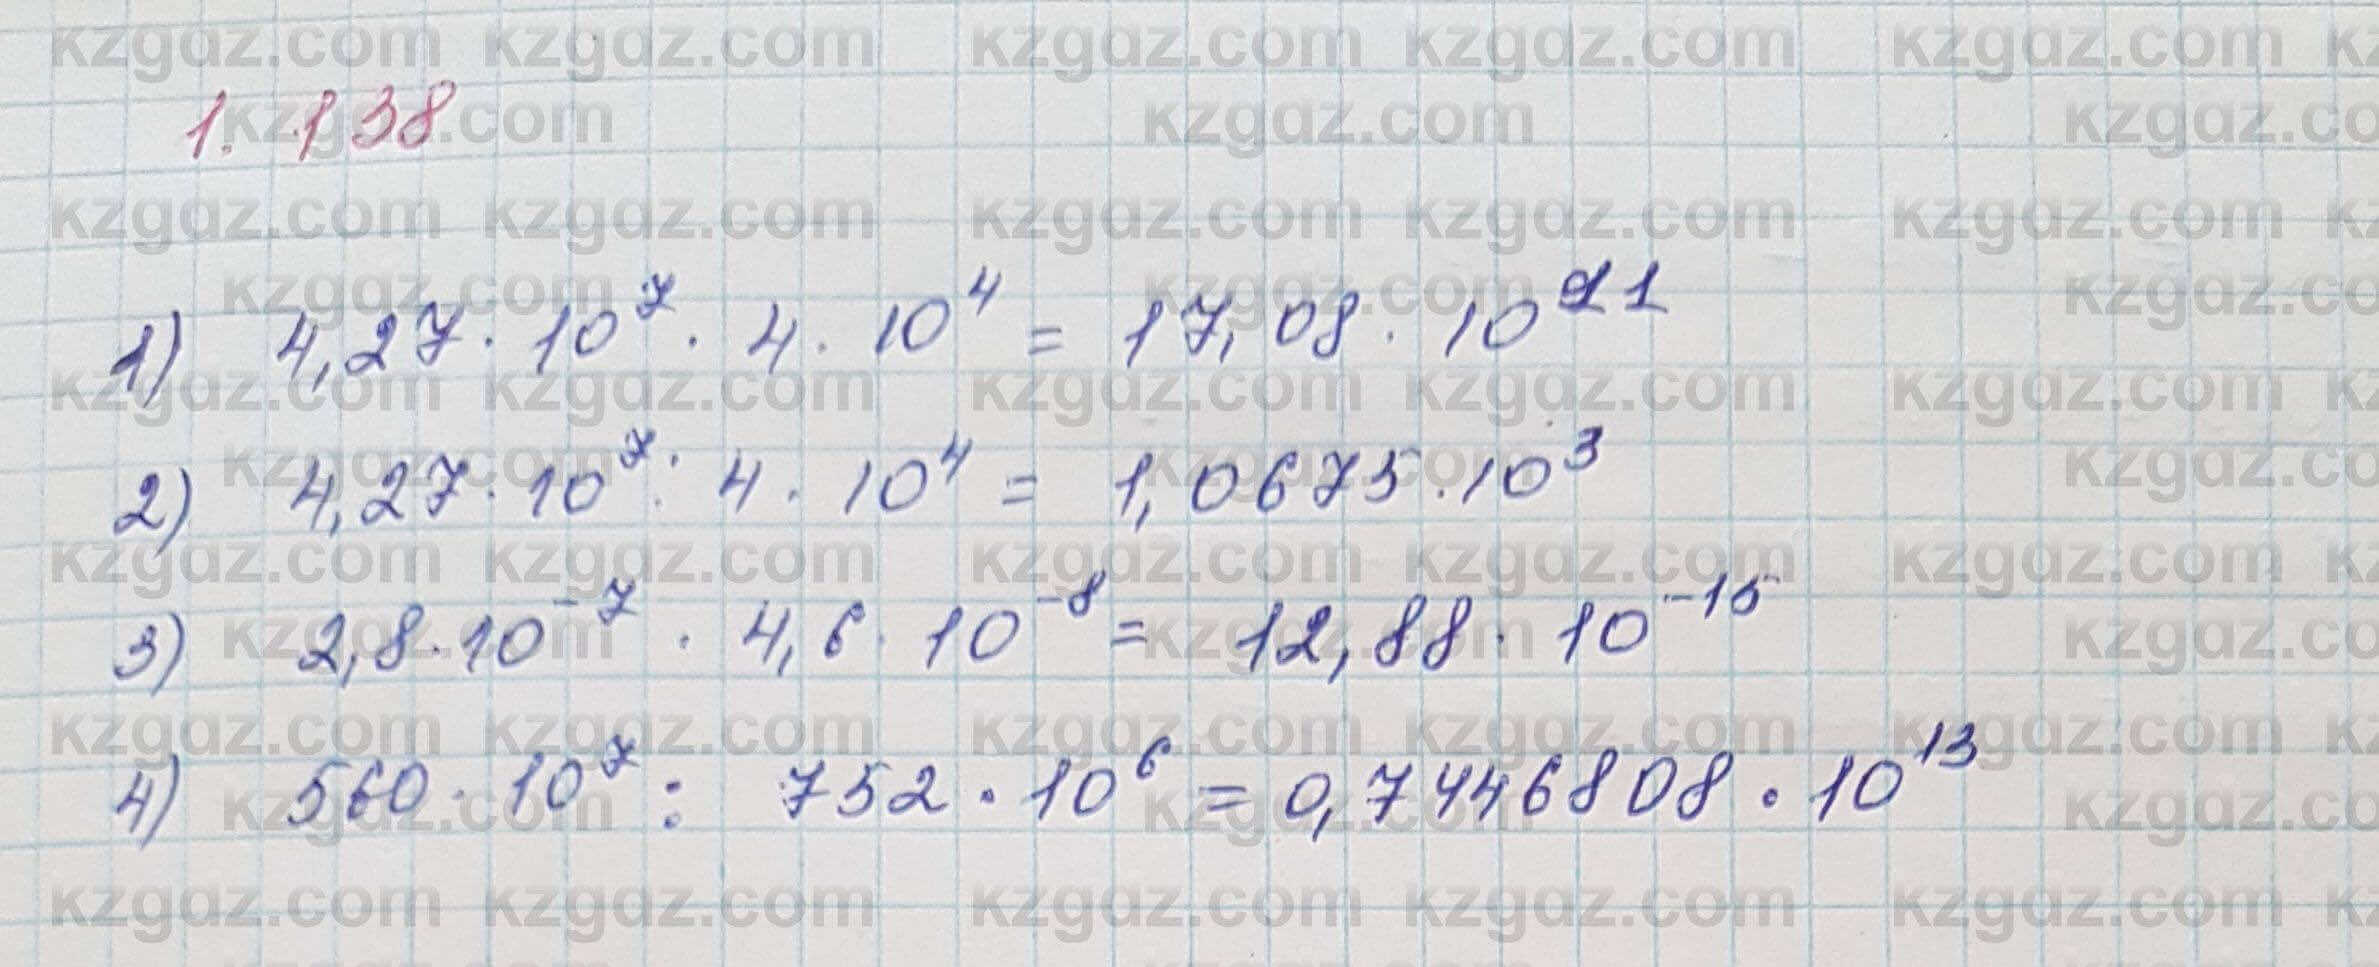 1.138
1) 4,27 · 10⁷ · 4 · 10⁴ = 17,08 · 10¹¹
2) 4,27 · 10⁷ : 4 · 10⁴ = 1,0675 · 10³
3) 2,8 · 10⁻⁷ · 4,6 · 10⁻⁸ = 12,88 · 10⁻¹⁵
4) 560 · 10⁷ : 752 · 10⁶ = 0,7446808 · 10¹³